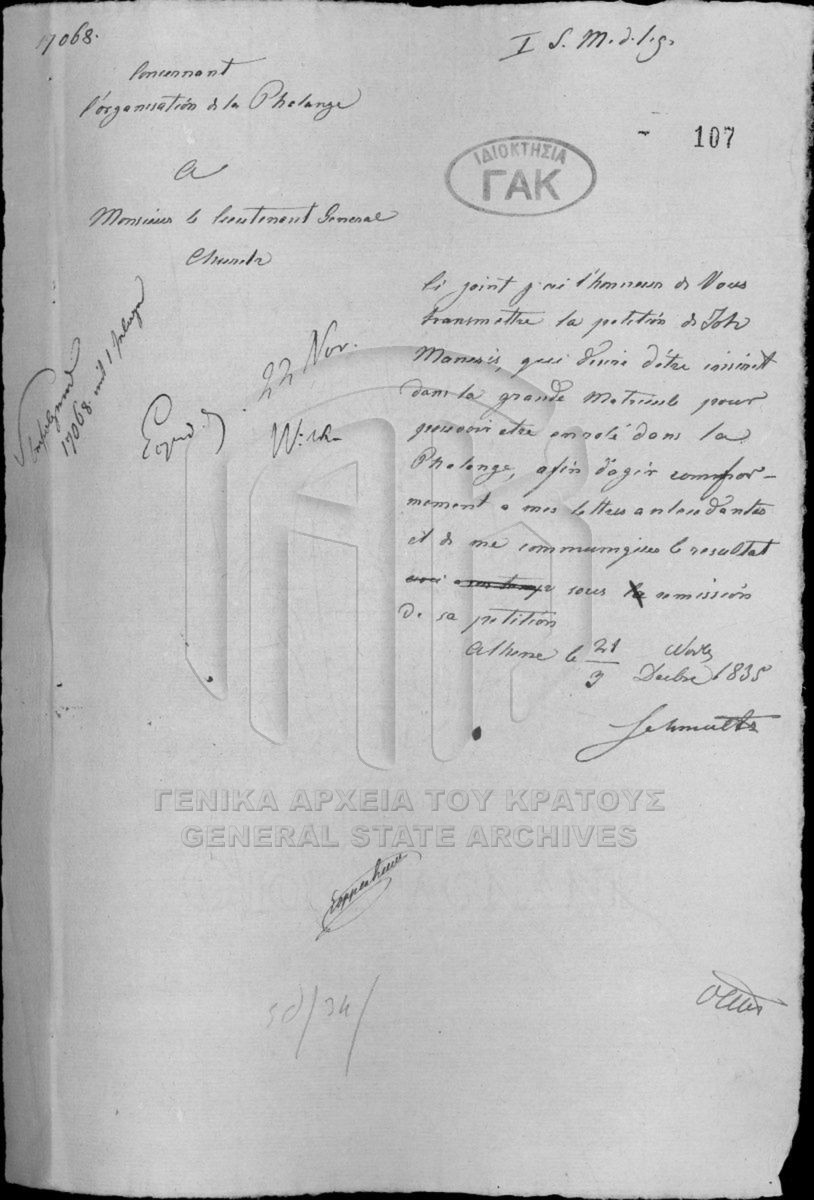 17068.
I S. M. d. l. g.
Concernant
l'organisation de la Phalange
- 107
ΙΔΙΟΚΤΗΣΙΑ
ΓΑΚ
A
Monsieur le lieutenant General
Church
Ci joint j'ai l'honneur de Vous
transmettre la petition de Joh
Manesis, qui desire d'être inscrit
dans la grande Matricule pour
pouvoir etre enrolé dans la
Phalange, afin d'agir comfor-
mement a mes lettres antecedantes
et de me communiquer le resultat
sous remission
de sa petition
Athene le 21/3 Novbr Decbre 1835
Schmaltz
17068 mit 1 Beilage
22 Nov.
ΓΕΝΙΚΑ ΑΡΧΕΙΑ ΤΟΥ ΚΡΑΤΟΥΣ
GENERAL STATE ARCHIVES